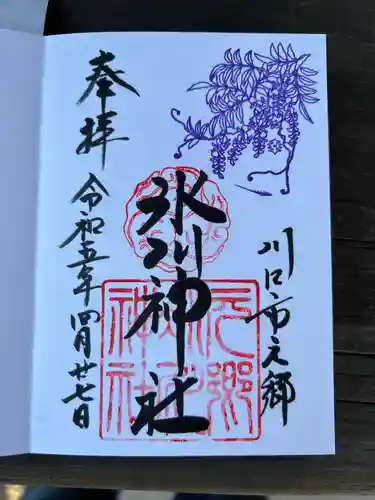 川口市元郷
氷川神社
奉拝
令和五年四月廿七日
元郷
氷川
神社